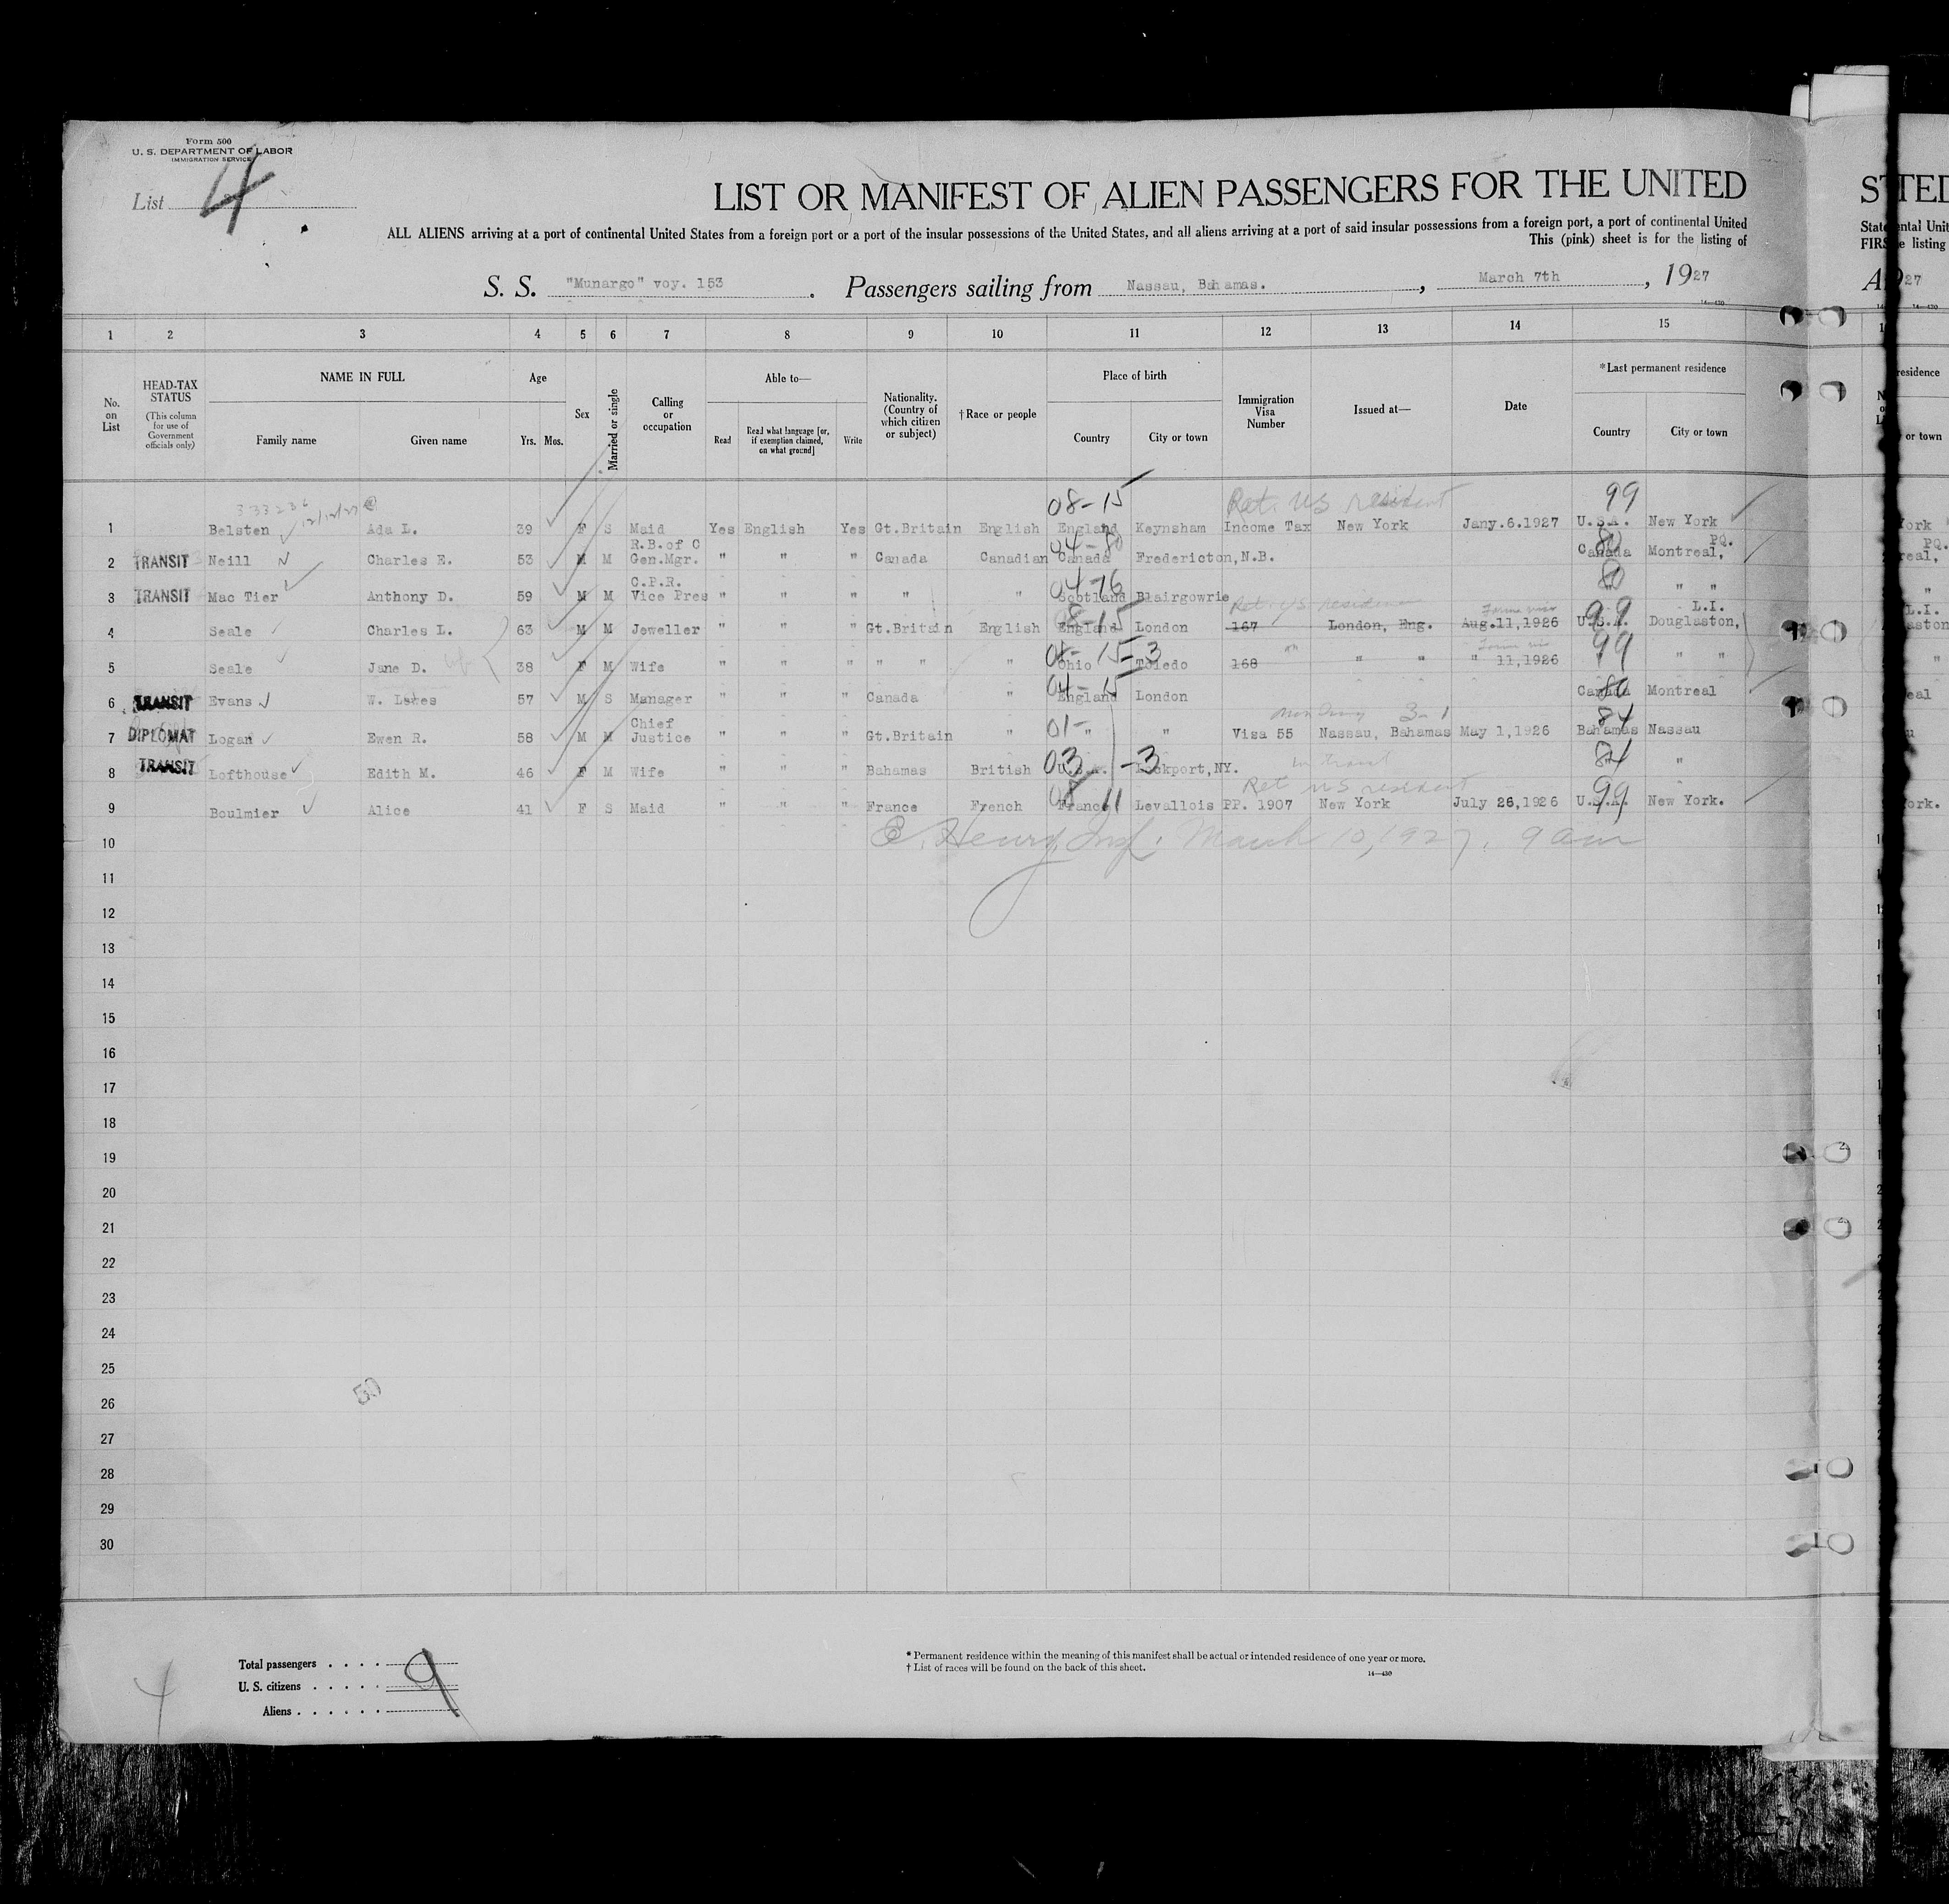 Form 500
U. S. DEPARTMENT OF LABOR
IMMIGRATION SERVICE
List 4
LIST OR MANIFEST OF ALIEN PASSENGERS FOR THE UNITED
ALL ALIENS arriving at a port of continental United States from a foreign port or a port of the insular possessions of the United States, and all aliens arriving at a port of said insular possessions from a foreign port, a port of continental United
This (pink) sheet is for the listing of
S. S. "Munargo" voy. 153 . Passengers sailing from Nassau, Bahamas. , March 7th , 1927
14—430
1 2 3 4 5 6 7 8 9 10 11 12 13 14 15
No. on List
HEAD-TAX STATUS (This column for use of Government officials only)
NAME IN FULL
Family name Given name
Age
Yrs. Mos.
Sex
Married or single
Calling or occupation
Able to—
Read Read what language [or, if exemption claimed, on what ground] Write
Nationality. (Country of which citizen or subject)
† Race or people
Place of birth
Country City or town
Immigration Visa Number
Issued at—
Date
* Last permanent residence
Country City or town
08-15 Ret. US resident 99
1 Belsten Ada L. 39 F S Maid Yes English Yes Gt.Britain English England Keynsham Income Tax New York Jany.6.1927 U.S.A. New York
R.B. of C 04-80 80 PQ.
2 TRANSIT Neill Charles E. 53 M M Gen.Mgr. " " " Canada Canadian Canada Fredericton,N.B. Canada Montreal,
C.P.R. 04-16 80
3 TRANSIT Mac Tier Anthony D. 59 M M Vice Pres " " " " " Scotland Blairgowrie " "
8-15 Ret. US resident 99 L.I.
4 Seale Charles L. 63 M M Jeweller " " " Gt.Britain English England London 167 London, Eng. Aug.11,1926 U.S.A. Douglaston,
08-15-3 99
5 Seale Jane D. 38 F M Wife " " " " " " Ohio Toledo 168 " " " 11,1926 " " "
04-15 80
6 TRANSIT Evans W. 57 M S Manager " " " Canada " England London Canada Montreal
Chief 01- 3-1 84
7 DIPLOMAT Logan Ewen R. 58 M M Justice " " " Gt.Britain " " " Visa 55 Nassau, Bahamas May 1,1926 Bahamas Nassau
03 -3 in transit 84
8 TRANSIT Lofthouse Edith M. 46 F M Wife " " " Bahamas British U.S.A. Lockport,NY. "
08 11 Ret US resident 99
9 Boulmier Alice 41 F S Maid " " " France French France Levallois PP. 1907 New York July 26,1926 U.S.A. New York.
10 E. Henry, Insp. March 10, 1927. 9 am
11
12
13
14
15
16
17
18
19
20
21
22
23
24
25
26
27
28
29
30
50
Total passengers . . . . 9
U. S. citizens . . . . .
Aliens . . . . . .
4
* Permanent residence within the meaning of this manifest shall be actual or intended residence of one year or more.
† List of races will be found on the back of this sheet.
14—430